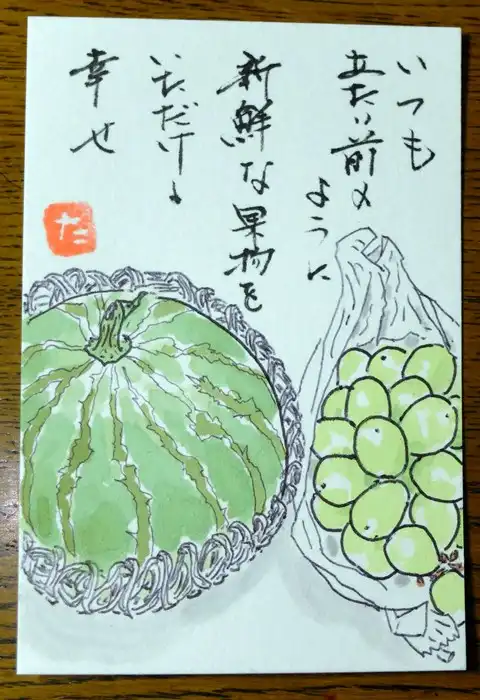 いつも
当たり前の
ように
新鮮な果物を
いただける
幸せ
た